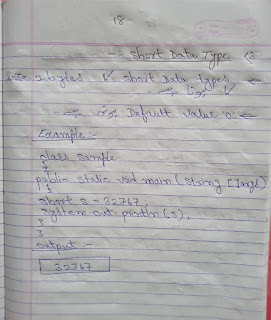 18
Short Data Type (3
2 bytes short Data types
Default value 0
Example :-
class sample
{
public static void main (string [] args)
{
short s = 32767;
system.out.println (s);
}
}
output -
32767